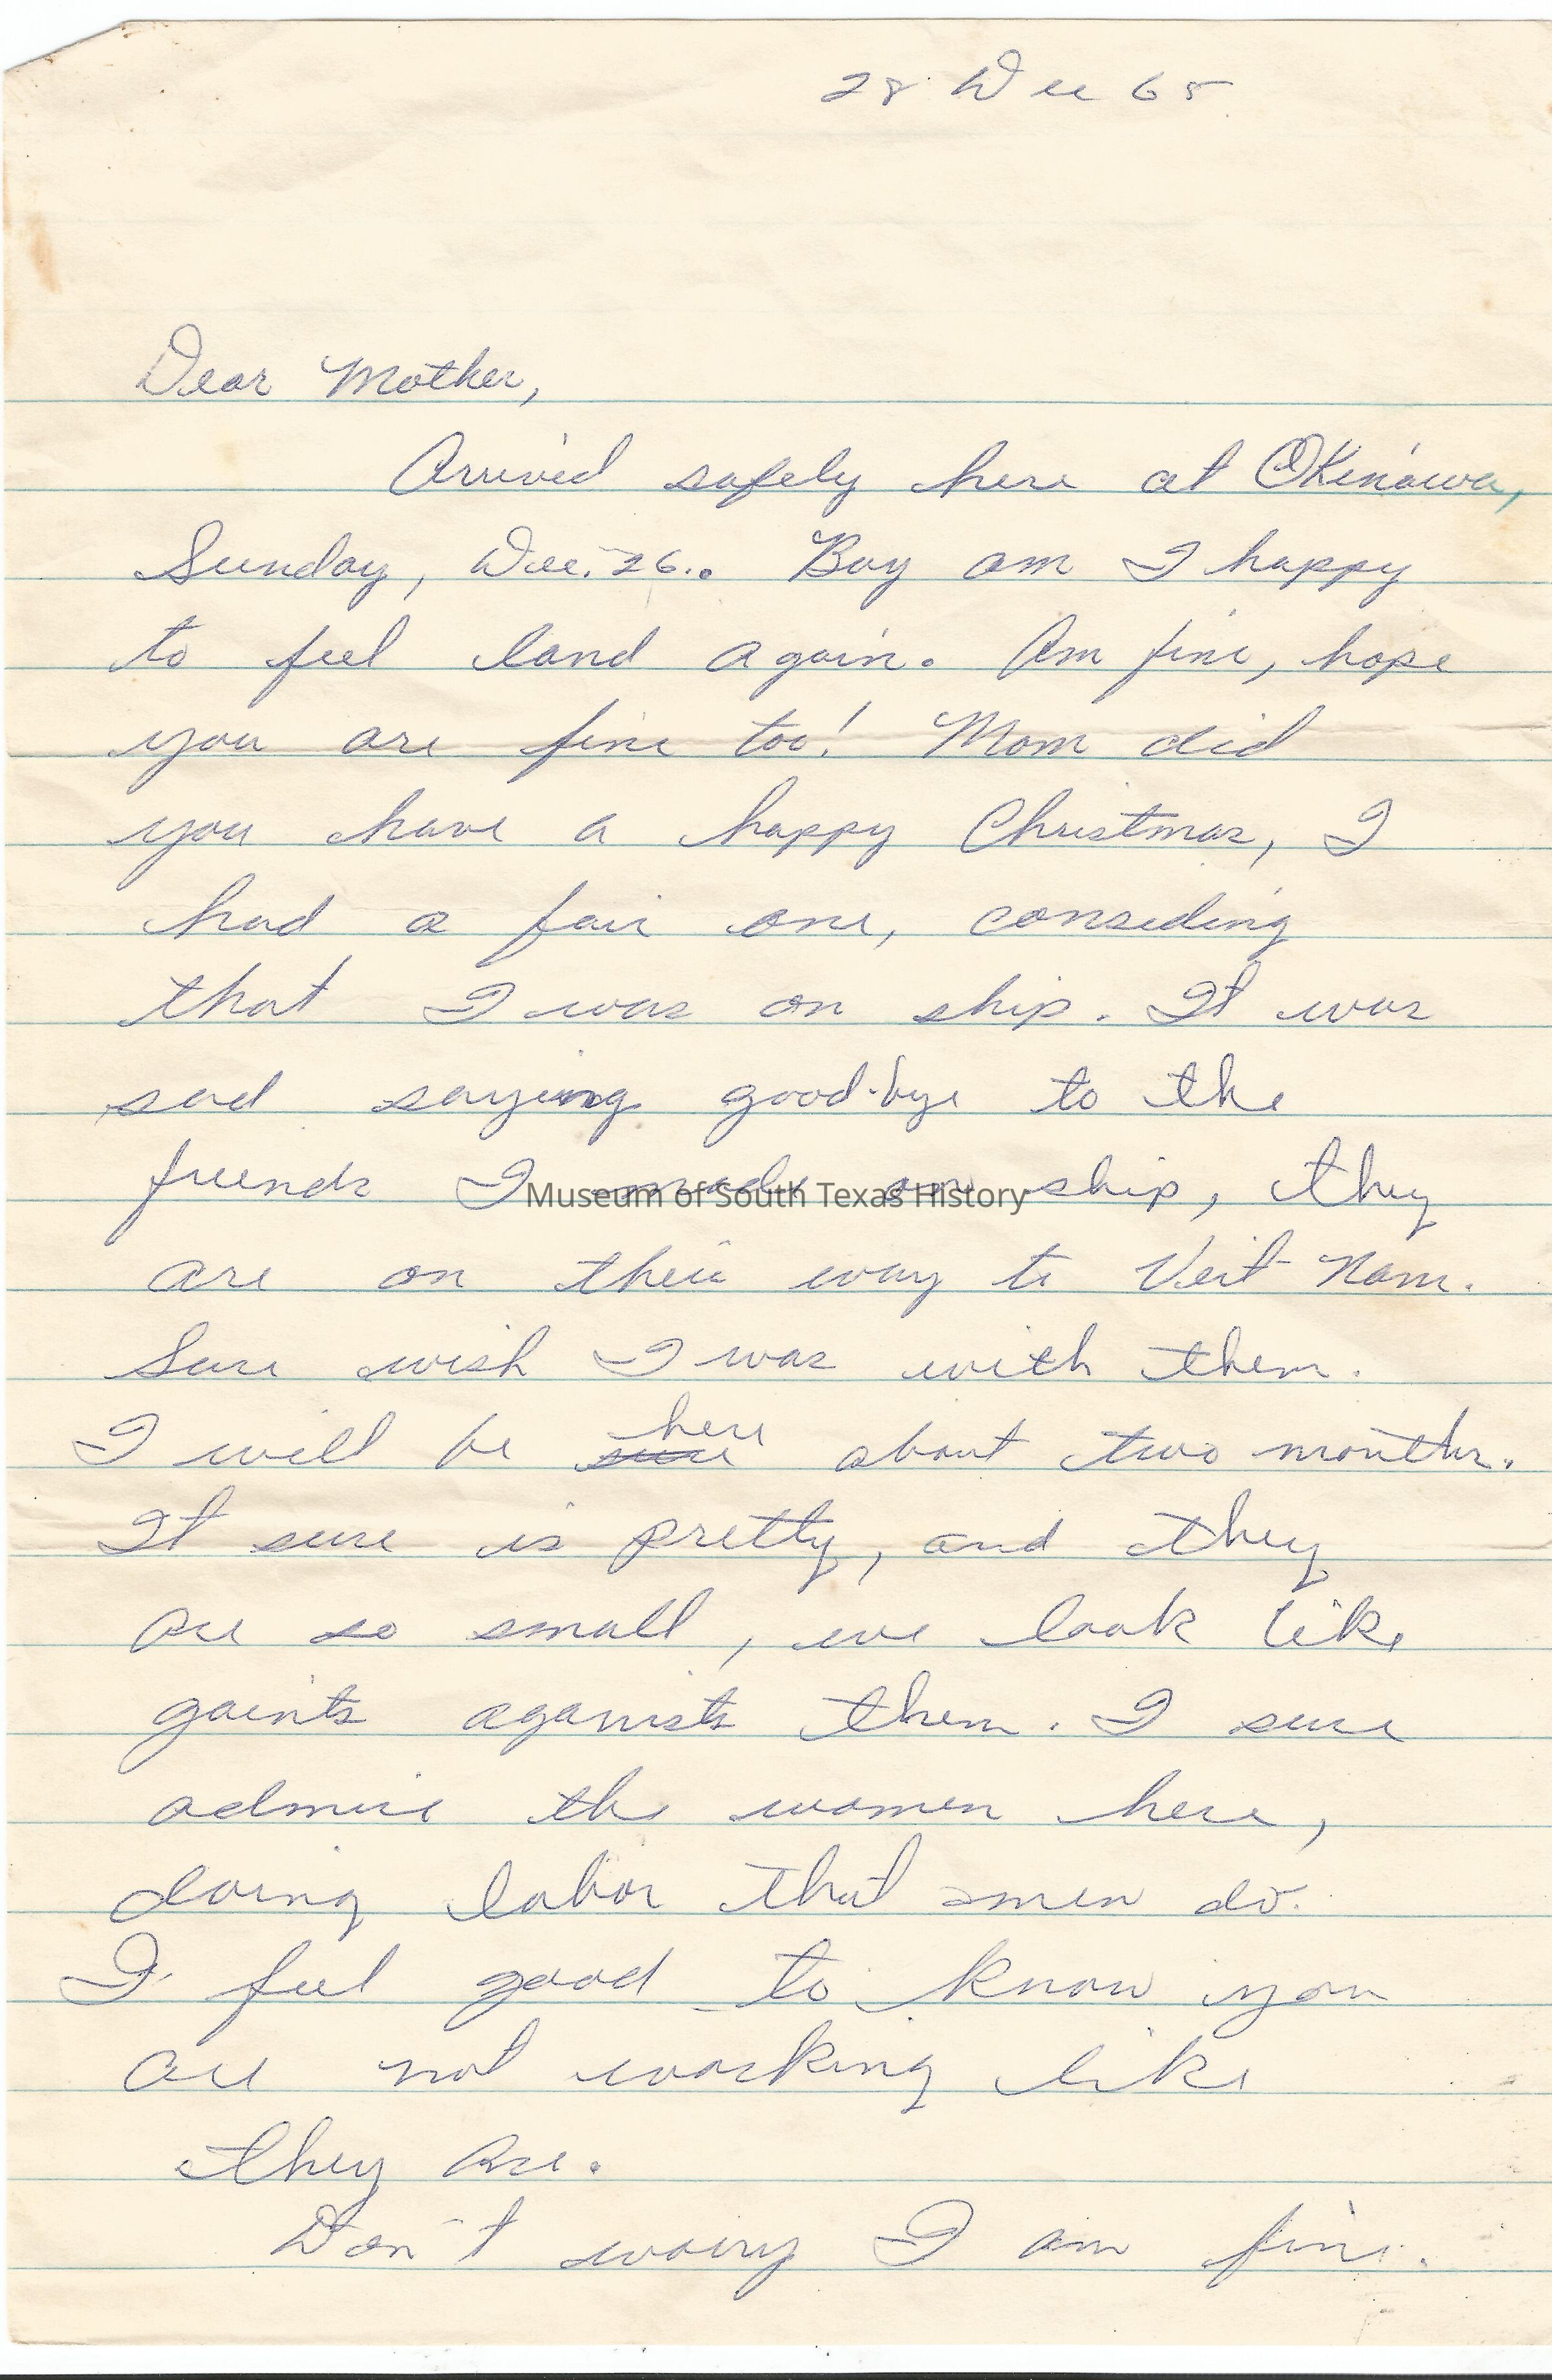 28 Dec 65
Dear Mother,
Arrived safely here at Okinawa,
Sunday, Dec. 26.. Boy am I happy
to feel land again. Am fine, hope
you are fine too! Mom did
you have a happy Christmas, I
had a fair one, considing
that I was on ship. It was
sad saying good-bye to the
friends I made on ship, they
Museum of South Texas History
are on their way to Veit Nam.
Sure wish I was with them.
I will be here about two months.
It sure is pretty, and they
are so small, we look like
gaints aganists them. I sure
admire the women here,
doing labor that men do.
I feel good to know you
are not working like
they are.
Don't worry I am fine.